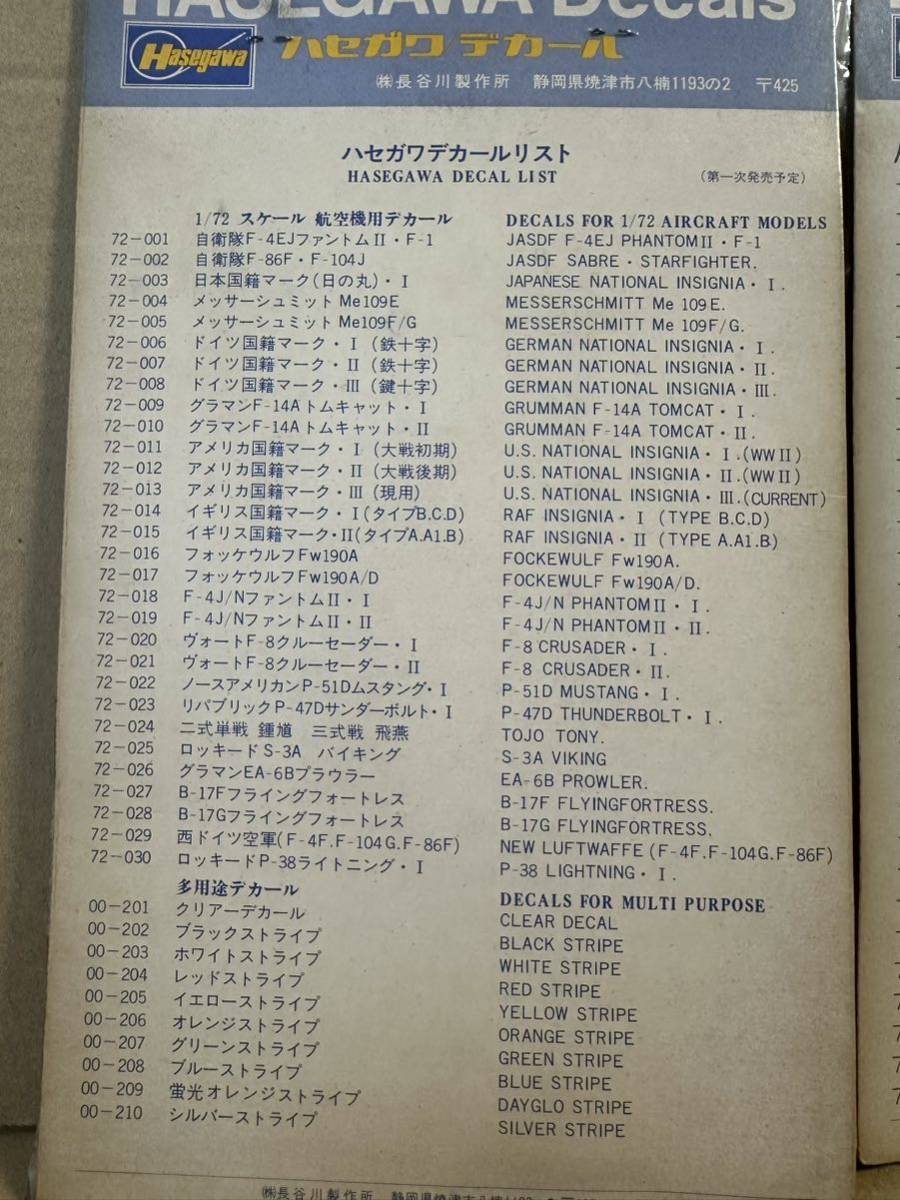 HASEGAWA Decals
Hasegawa ハセガワ デカール
㈱長谷川製作所 静岡県焼津市八楠1193の2 〒425
ハセガワデカールリスト
HASEGAWA DECAL LIST (第一次発売予定)
1/72 スケール 航空機用デカール DECALS FOR 1/72 AIRCRAFT MODELS
72-001 自衛隊F-4EJファントムII・F-1 JASDF F-4EJ PHANTOMII・F-1
72-002 自衛隊F-86F・F-104J JASDF SABRE・STARFIGHTER.
72-003 日本国籍マーク(日の丸)・I JAPANESE NATIONAL INSIGNIA・I.
72-004 メッサーシュミット Me109E MESSERSCHMITT Me 109E.
72-005 メッサーシュミット Me109F/G MESSERSCHMITT Me 109F/G.
72-006 ドイツ国籍マーク・I (鉄十字) GERMAN NATIONAL INSIGNIA・I.
72-007 ドイツ国籍マーク・II (鉄十字) GERMAN NATIONAL INSIGNIA・II.
72-008 ドイツ国籍マーク・III (鍵十字) GERMAN NATIONAL INSIGNIA・III.
72-009 グラマンF-14Aトムキャット・I GRUMMAN F-14A TOMCAT・I.
72-010 グラマンF-14Aトムキャット・II GRUMMAN F-14A TOMCAT・II.
72-011 アメリカ国籍マーク・I (大戦初期) U.S. NATIONAL INSIGNIA・I.(WWII)
72-012 アメリカ国籍マーク・II (大戦後期) U.S. NATIONAL INSIGNIA・II.(WWII)
72-013 アメリカ国籍マーク・III (現用) U.S. NATIONAL INSIGNIA・III.(CURRENT)
72-014 イギリス国籍マーク・I(タイプB.C.D) RAF INSIGNIA・I (TYPE B.C.D)
72-015 イギリス国籍マーク・II(タイプA.A1.B) RAF INSIGNIA・II (TYPE A.A1.B)
72-016 フォッケウルフFw190A FOCKEWULF Fw190A.
72-017 フォッケウルフFw190A/D FOCKEWULF Fw190A/D.
72-018 F-4J/NファントムII・I F-4J/N PHANTOMII・I.
72-019 F-4J/NファントムII・II F-4J/N PHANTOMII・II.
72-020 ヴォートF-8クルーセーダー・I F-8 CRUSADER・I.
72-021 ヴォートF-8クルーセーダー・II F-8 CRUSADER・II.
72-022 ノースアメリカンP-51Dムスタング・I P-51D MUSTANG・I.
72-023 リパブリックP-47Dサンダーボルト・I P-47D THUNDERBOLT・I.
72-024 二式単戦 鍾馗 三式戦 飛燕 TOJO TONY.
72-025 ロッキードS-3A バイキング S-3A VIKING
72-026 グラマンEA-6Bプラウラー EA-6B PROWLER.
72-027 B-17Fフライングフォートレス B-17F FLYINGFORTRESS.
72-028 B-17Gフライングフォートレス B-17G FLYINGFORTRESS.
72-029 西ドイツ空軍(F-4F.F-104G.F-86F) NEW LUFTWAFFE (F-4F.F-104G.F-86F)
72-030 ロッキードP-38ライトニング・I P-38 LIGHTNING・I.
多用途デカール DECALS FOR MULTI PURPOSE
00-201 クリアーデカール CLEAR DECAL
00-202 ブラックストライプ BLACK STRIPE
00-203 ホワイトストライプ WHITE STRIPE
00-204 レッドストライプ RED STRIPE
00-205 イエローストライプ YELLOW STRIPE
00-206 オレンジストライプ ORANGE STRIPE
00-207 グリーンストライプ GREEN STRIPE
00-208 ブルーストライプ BLUE STRIPE
00-209 蛍光オレンジストライプ DAYGLO STRIPE
00-210 シルバーストライプ SILVER STRIPE
㈱長谷川製作所 静岡県焼津市八楠